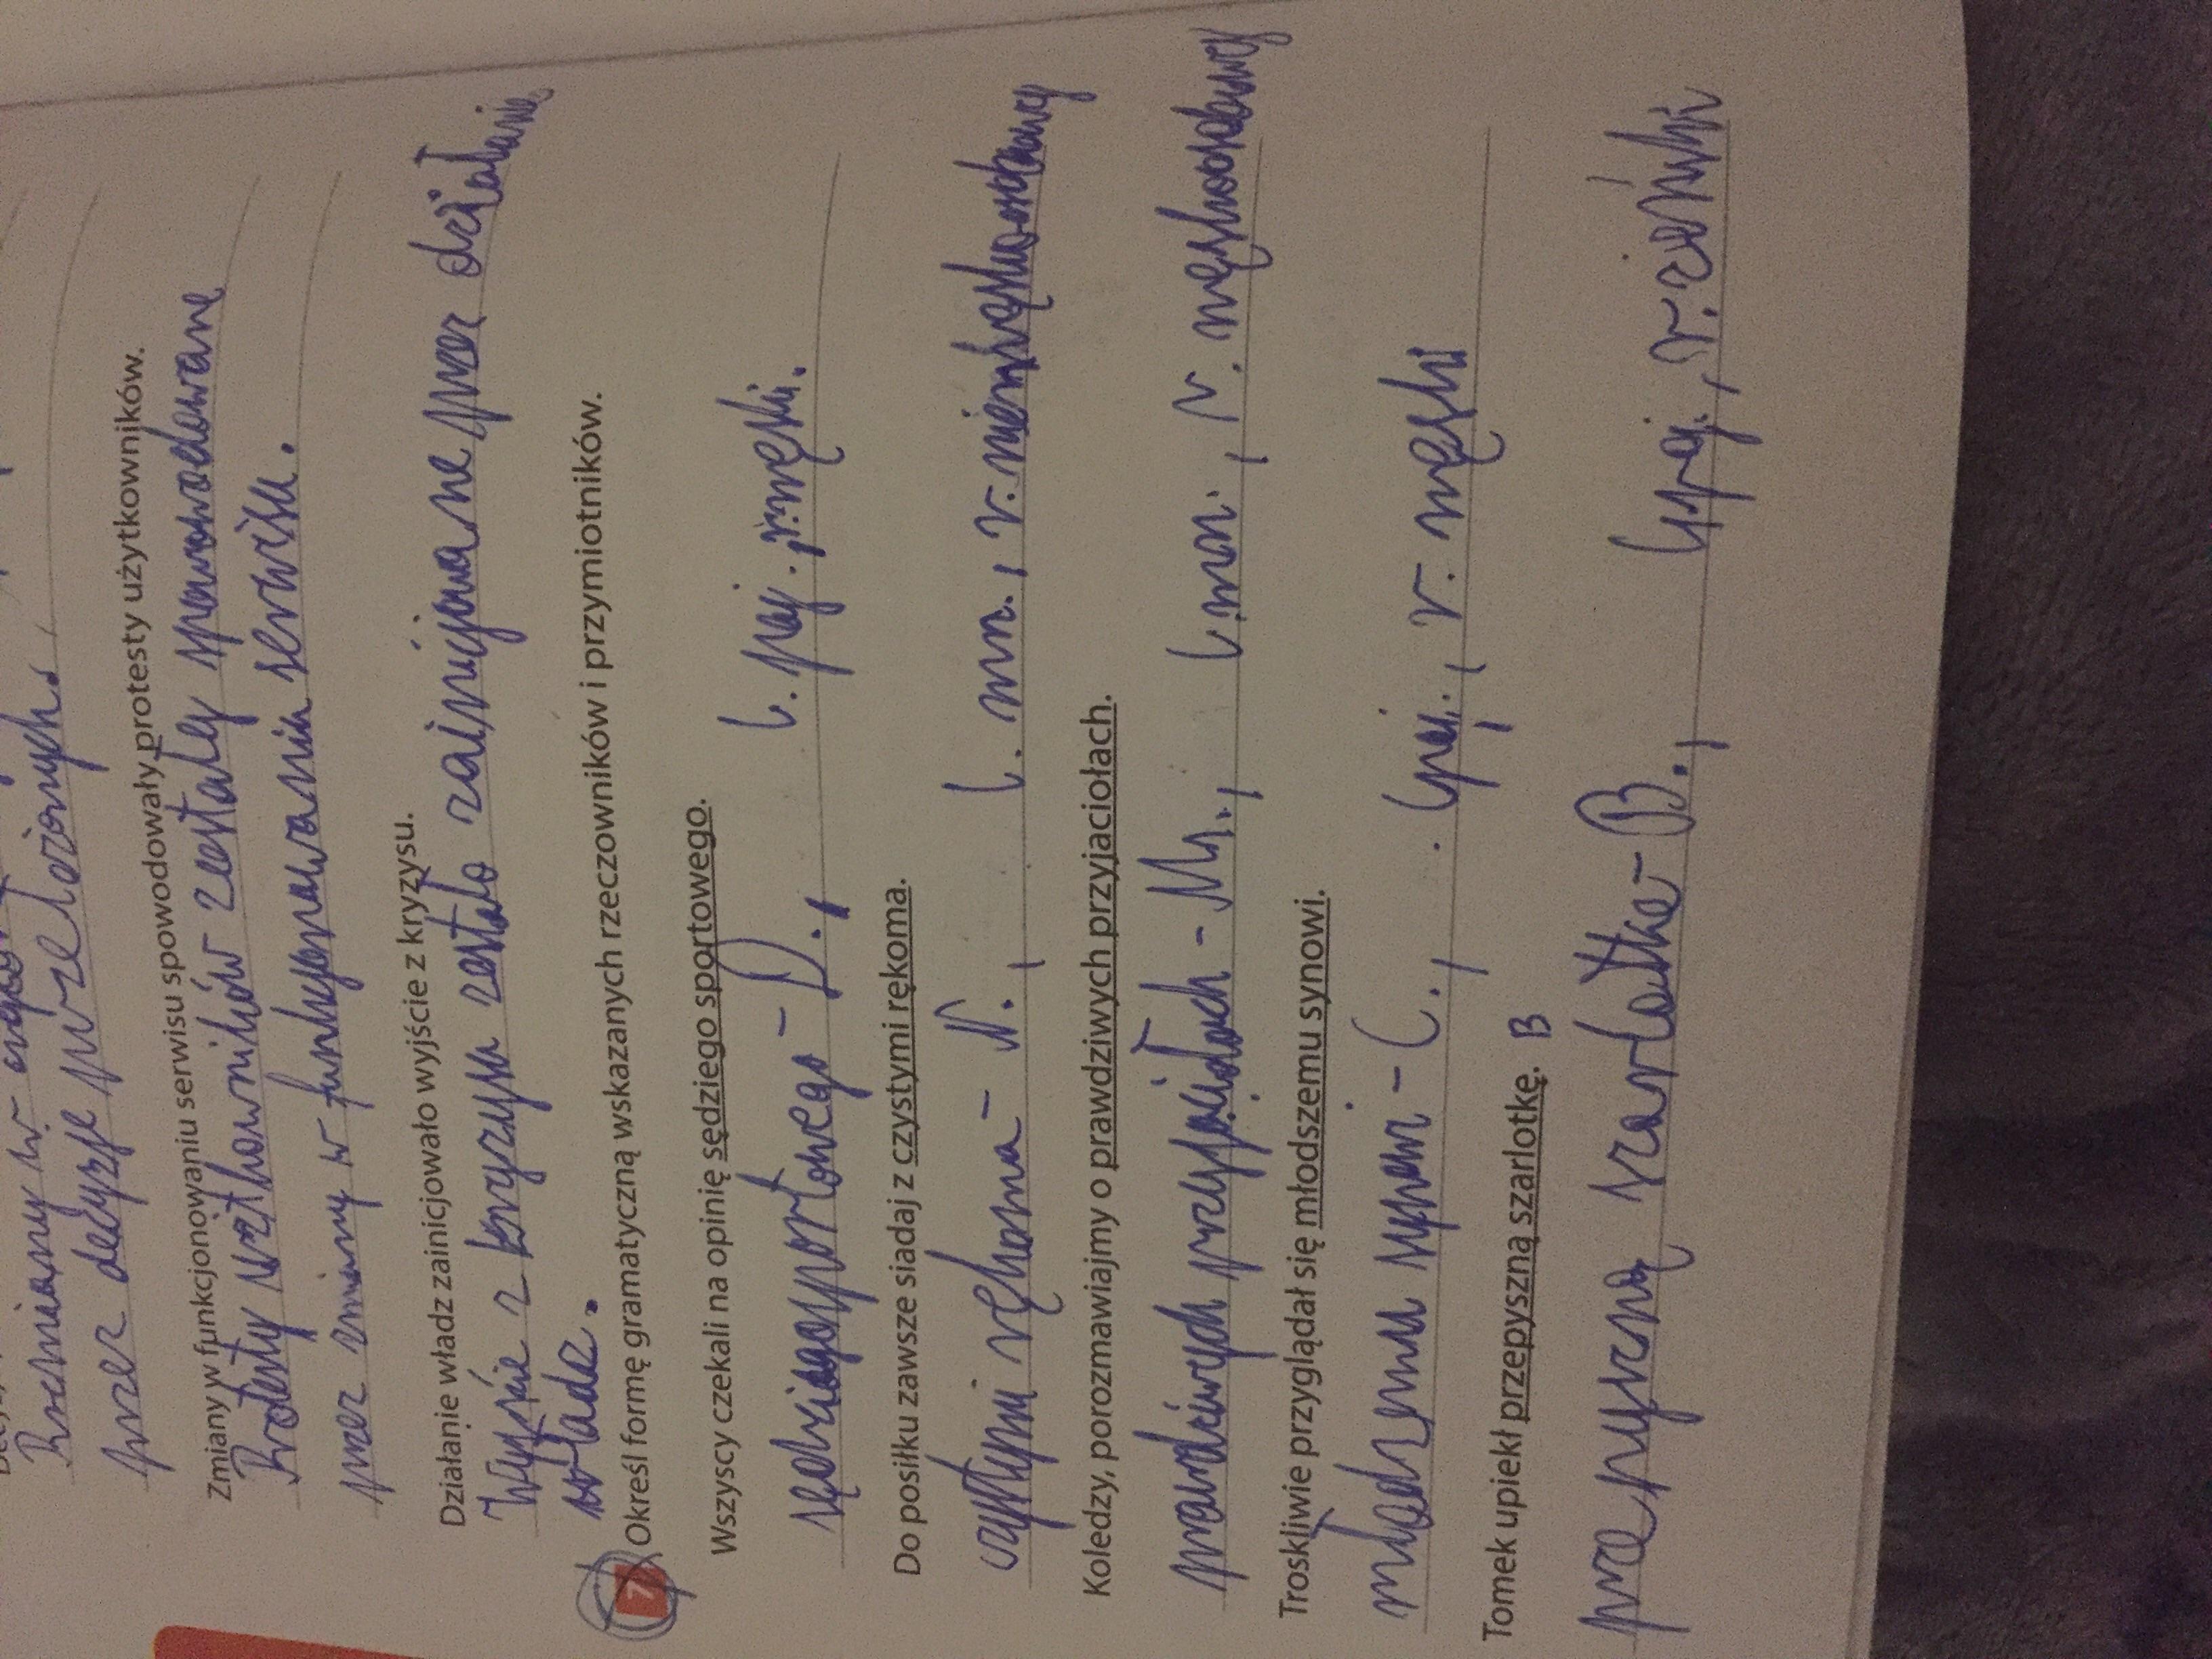 Rozmiany w
przez decyzje przełożonych.
Zmiany w funkcjonowaniu serwisu spowodowały protesty użytkowników.
Protesty użytkowników zostały spowodowane
przez zmiany w funkcjonowaniu serwisu.
Działanie władz zainicjowało wyjście z kryzysu.
Wyjście z kryzysu zostało zainicjowane przez działanie
władz.
7 Określ formę gramatyczną wskazanych rzeczowników i przymiotników.
Wszyscy czekali na opinię sędziego sportowego.
sędziego sportowego - D., l. poj., r. męski.
Do posiłku zawsze siadaj z czystymi rękoma.
czystymi rękoma - N., l. mn., r. niemęskoosobowy
Koledzy, porozmawiajmy o prawdziwych przyjaciołach.
prawdziwych przyjaciołach - Ms., l. mn., r. męskoosobowy
Troskliwie przyglądał się młodszemu synowi.
młodszemu synowi - C., l. poj., r. męski
Tomek upiekł przepyszną szarlotkę. B
przepyszną szarlotkę - B., l. poj., r. żeński